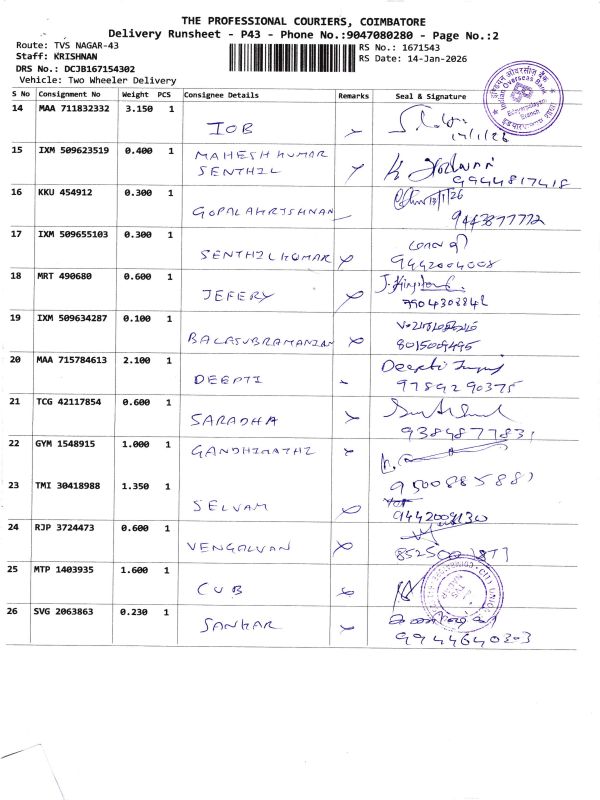 THE PROFESSIONAL COURIERS, COIMBATORE
Delivery Runsheet - P43 - Phone No.:9047080280 - Page No.:2
Route: TVS NAGAR-43
RS No.: 1671543
Staff: KRISHNAN
RS Date: 14-Jan-2026
DRS No.: DCJB167154302
Vehicle: Two Wheeler Delivery
S No Consignment No Weight PCS Consignee Details Remarks Seal & Signature
14 MAA 711832332 3.150 1
IOB
14/1/26
15 IXM 509623519 0.400 1 MAHESH KUMAR
SENTHIL
9944817418
16 KKU 454912 0.300 1
GOPALAHRISHNAN
9443877772
17 IXM 509655103 0.300 1
SENTHILKUMAR
9442004008
18 MRT 490680 0.600 1
JEFERY
7904303842
19 IXM 509634287 0.100 1
BALASUBRAMANIAN
8015009495
20 MAA 715784613 2.100 1
DEEPTI
Deepti
9789290375
21 TCG 42117854 0.600 1
SARADHA
9384877831
22 GYM 1548915 1.000 1 GANDHIMATHI
23 TMI 30418988 1.350 1
9500885887
SELVAM
9442009130
24 RJP 3724473 0.600 1
VENGALVAN
25 MTP 1403935 1.600 1
CUB
26 SVG 2063863 0.230 1
SANKAR
9944640303
इण्डियन ओवरसीज़ बैंक
Indian Overseas Bank
Branch